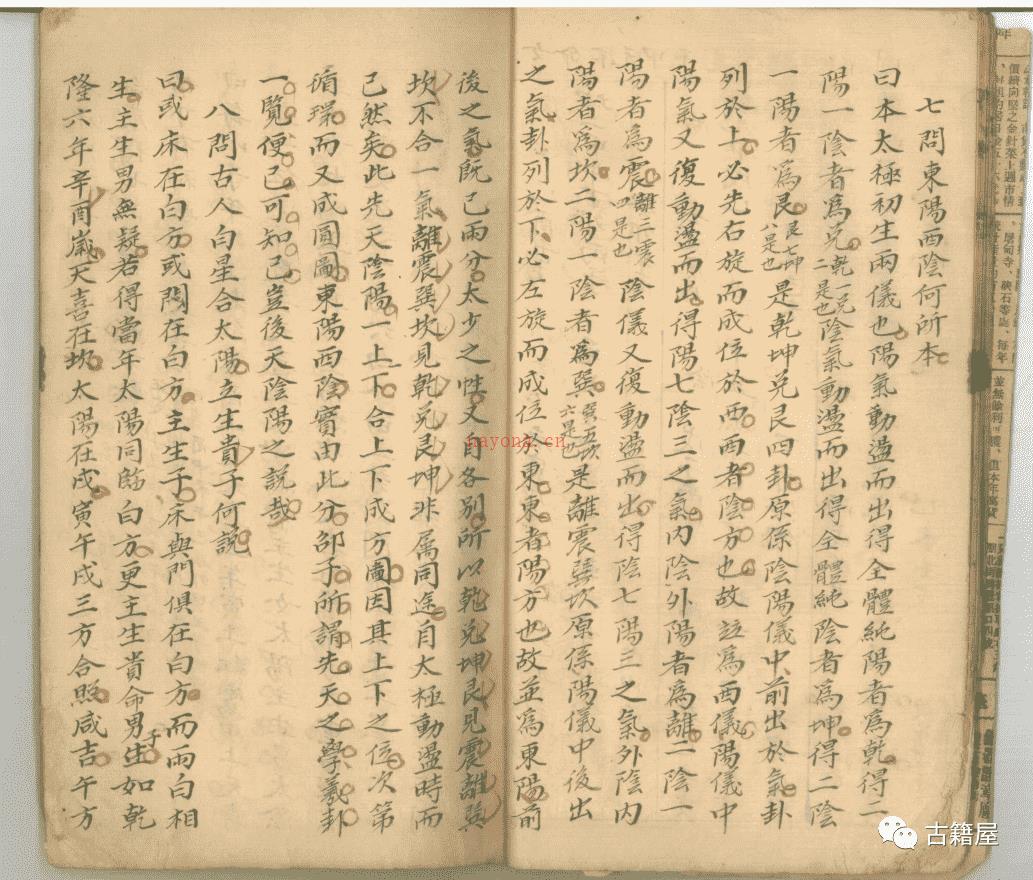 七問東陽西陰何所本
曰本太極初生兩儀也陽氣動盪而出得全體純陽者為乾得二
陽一陰者為兌乾一兌二是也陰氣動盪而出得全體純陰者為坤得二陰
一陽者為艮艮七坤八是也是乾坤兌艮四卦原係陰陽儀中前出於氣卦
列於上必先右旋而成位於西西者陰方也故竝為西儀陽儀中
陽氣又復動盪而出得陽七陰三之氣內陰外陽者為離二陰一
陽者為震離三震四是也陰儀又復動盪而出得陰七陽三之氣外陰內
陽者為坎二陽一陰者為巽巽五坎六是也是離震巽坎原係陽儀中後出
之氣卦列於下必左旋而成位於東東者陽方也故並為東陽前
後之氣既已兩分太少之性又自各別所以乾兌坤艮見震離巽
坎不合一氣離震巽坎見乾兌艮坤非属同途自太極動盪時而
已然矣此先天陰陽一上一下合上下成方圖因其上下之位次第
循環而又成圓圖東陽西陰實由此分邵子所謂先天之學羲卦
一覽便已可知已豈後天陰陽之説哉
八問古人白星合太陽立生貴子何説
曰或床在白方或門在白方主生子床與門俱在白方而兩白相
生主生男無疑若得當年太陽同臨白方更主生貴命男子生如乾
隆六年辛酉嵗天喜在坎太陽在戌寅午戌三方合照咸吉午方
nayona.cn
古籍屋